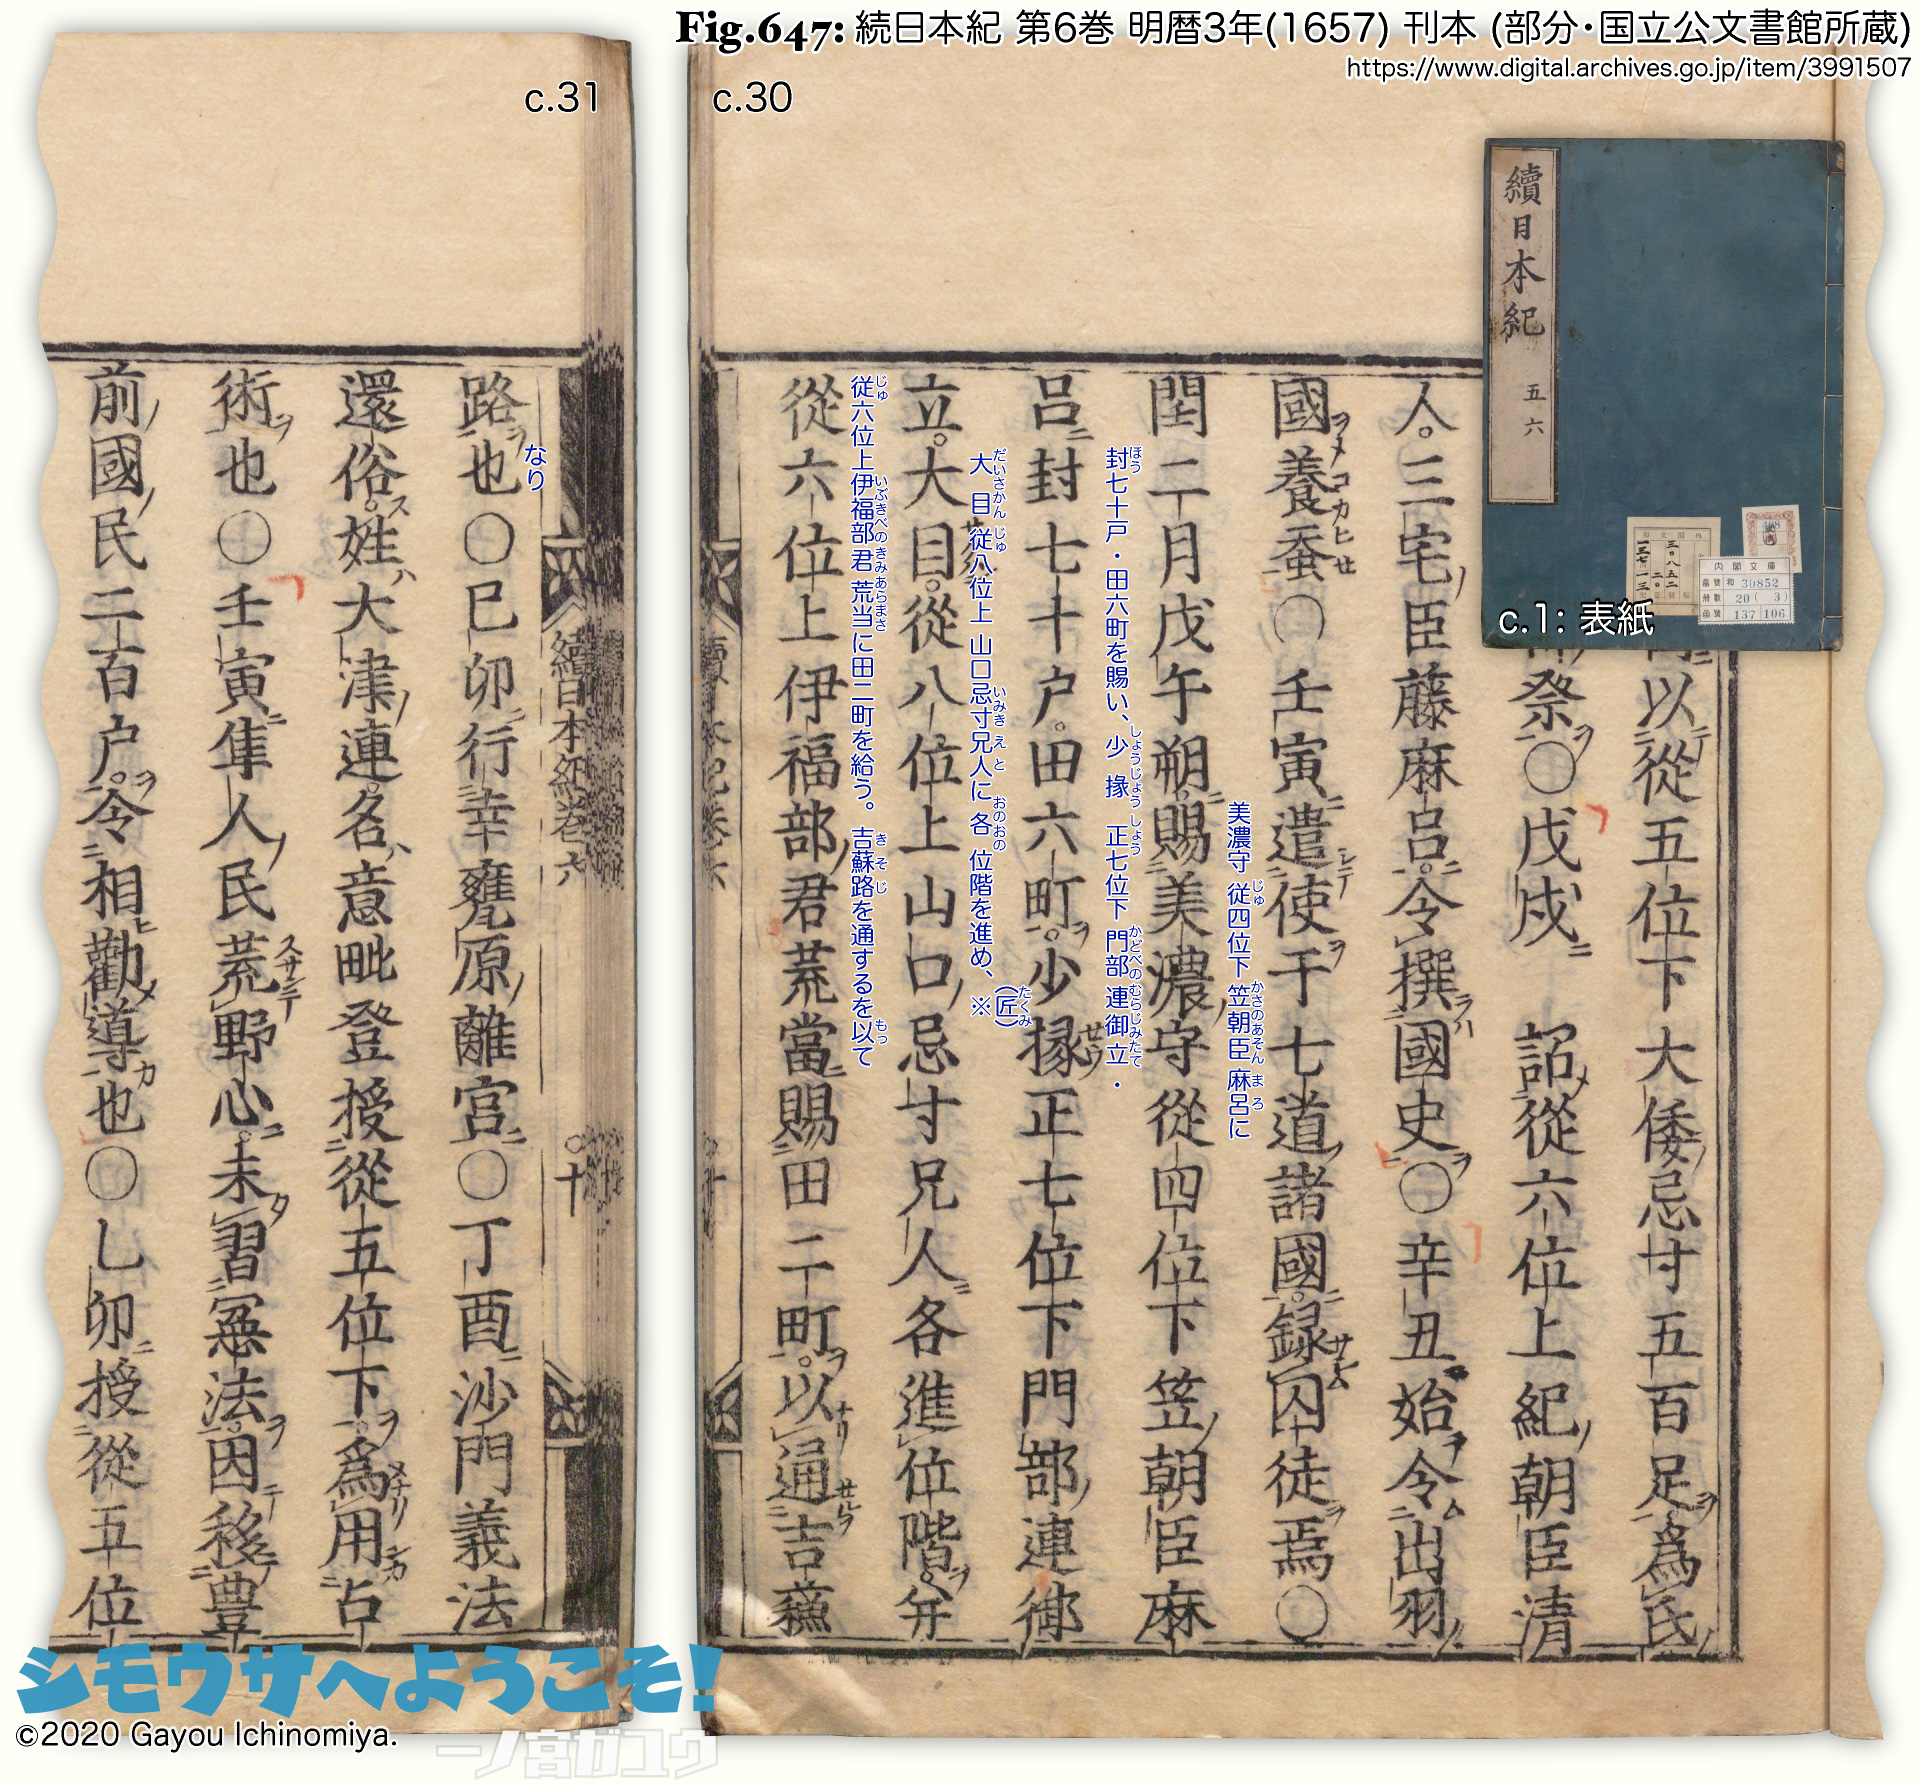 Fig.647: 続日本紀 第6巻 明暦3年(1657) 刊本 (部分・国立公文書館所蔵)
https://www.digital.archives.go.jp/item/3991507
c.30
續日本紀 五 六
内閣文庫
番號 和 30852
冊數 20(3)
函號 137 106
c.1: 表紙
以從五位下大倭忌寸五百足爲氏
祭〇戊戌 詔從六位上紀朝臣清
人。三宅臣藤麻呂。令撰國史〇辛丑始令出羽
國養蚕〇壬寅遣使于七道諸國。録囚徒焉〇
閏二月戊午朔。賜美濃守從四位下笠朝臣麻
美濃守 従四位下 笠朝臣麻呂に
呂封七十戸。田六町。少掾正七位下門部連御
封七十戸・田六町を賜い、少掾 正七位下 門部連御立・
立。大目。從八位上山口忌寸兄人各進位階。并
大目 従八位上 山口忌寸兄人に各位階を進め、※(匠)
從六位上伊福部君荒當賜田二町。以通吉蘓
従六位上伊福部君荒当に田二町を給う。吉蘇路を通するを以て
c.31
續日本紀卷六
十
路也〇巳卯行幸甕原離宮〇丁酉沙門義法
なり
還俗。姓大津連。名意毗登授從五位下。爲用占
術也〇壬寅隼人民荒野心。未習憲法。因移豊
前國民二百戸。令相勸導也〇乙卯授從五位
シモウサへようこそ!
©2020 Gayou Ichinomiya.
一ノ宮ガユウ